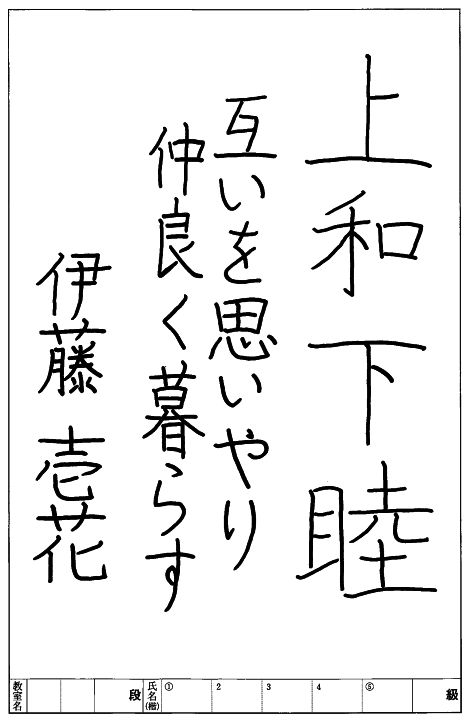 上和下睦
互いを思いやり
仲良く暮らす
伊藤 壱花
級 ⑤ 4 3 2 ① 氏名(楷) 段 教室名